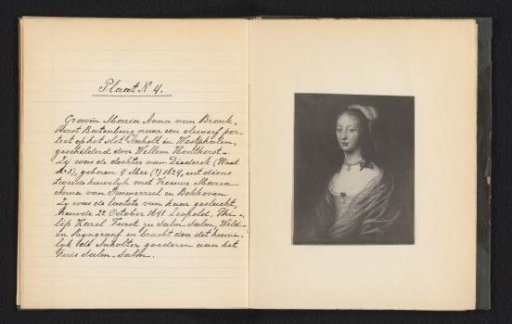 Plaat N 4.
Gravin Maria Anna van Bronk-
horst Batenburg naar een olieverf por-
tret op het slot Anholt in Westphalen,
geschilderd door Willem Honthorst.-
Zij was de dochter van Diederik (Plaat
No 3), geboren 9 Mei (?) 1624, uit diens
tweede huwelijk met Vrouwe Maria
Anna van Immerseel en Bokhoven.
Zij was de laatste van haar geslacht,
huwde 22 October 1641 Leopold Phi-
lip Karel Furst zu Salm-Salm, Wild-
en Ryngraaf en bracht door dit huwe-
lijk de Anholter goederen aan het
huis Salm-Salm.